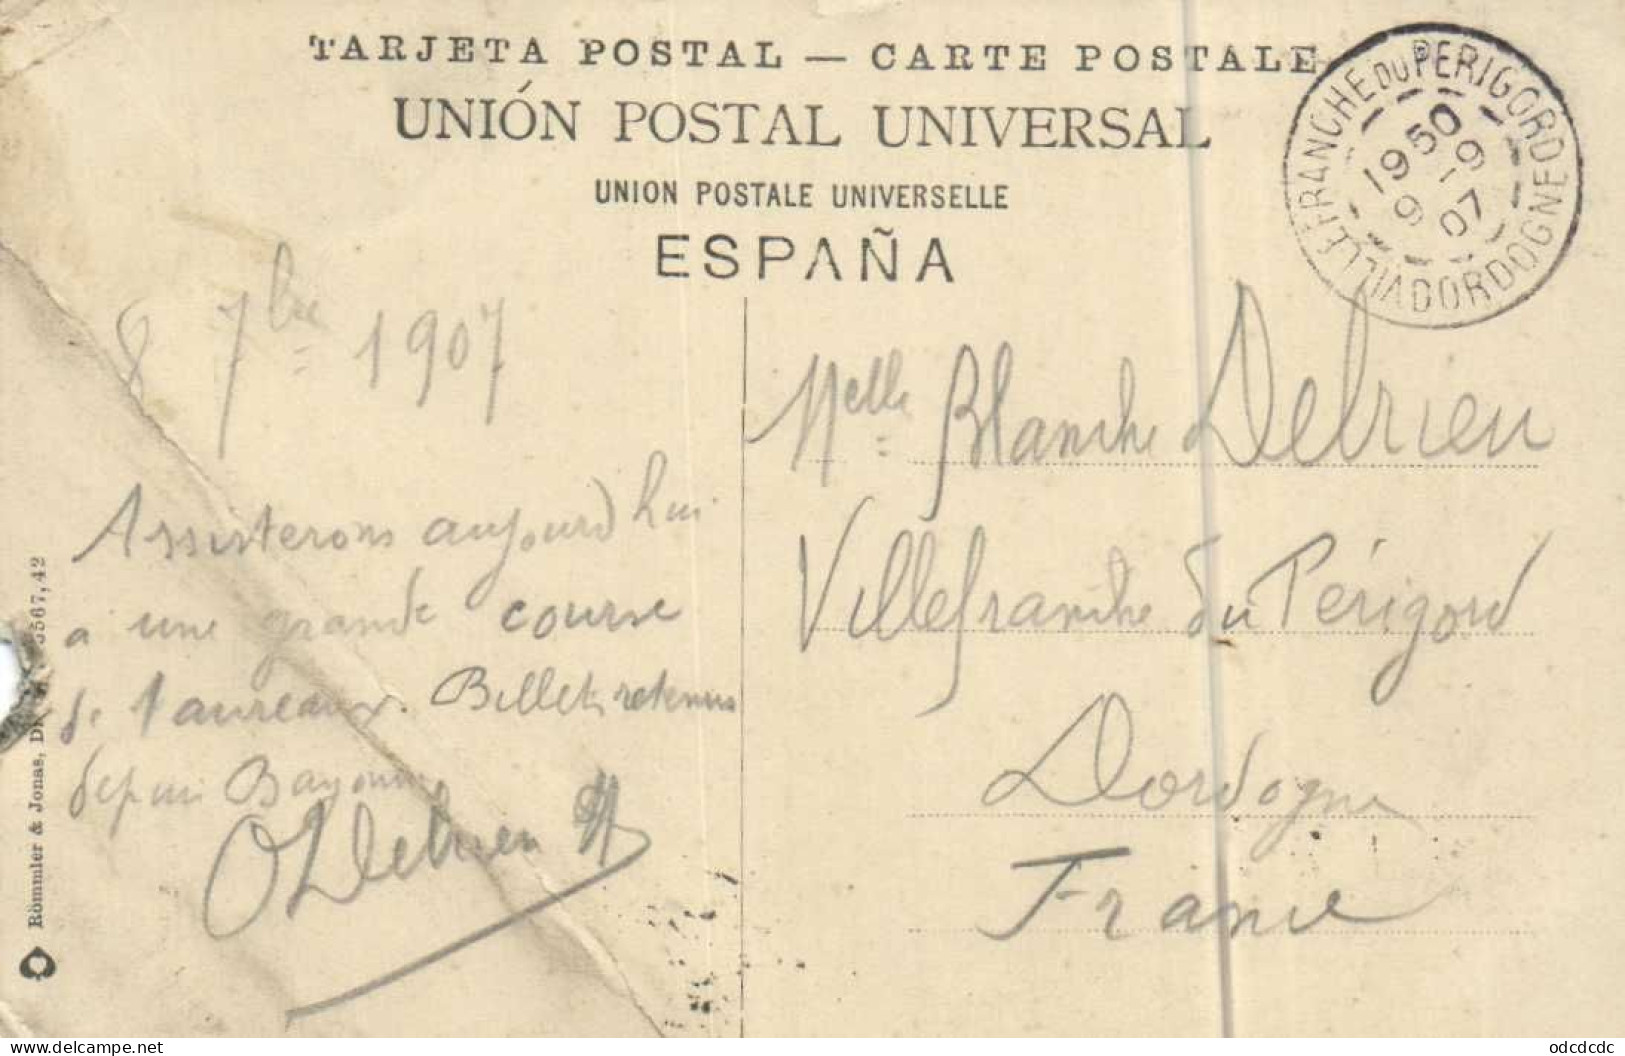 TARJETA POSTAL — CARTE POSTALE
UNIÓN POSTAL UNIVERSAL
UNION POSTALE UNIVERSELLE
ESPAÑA
VILLEFRANCHE DU PERIGORD
DORDOGNE
19 50
9 -9
07
8 7bre 1907
Assisterons aujourd'hui
a une grande course
de taureaux. Billets retenus
depuis Bayonne
Delrieu
Melle Blanche Delrieu
Villefranche du Périgord
Dordogne
France
Römmler & Jonas, 3567,42
odcdcdc